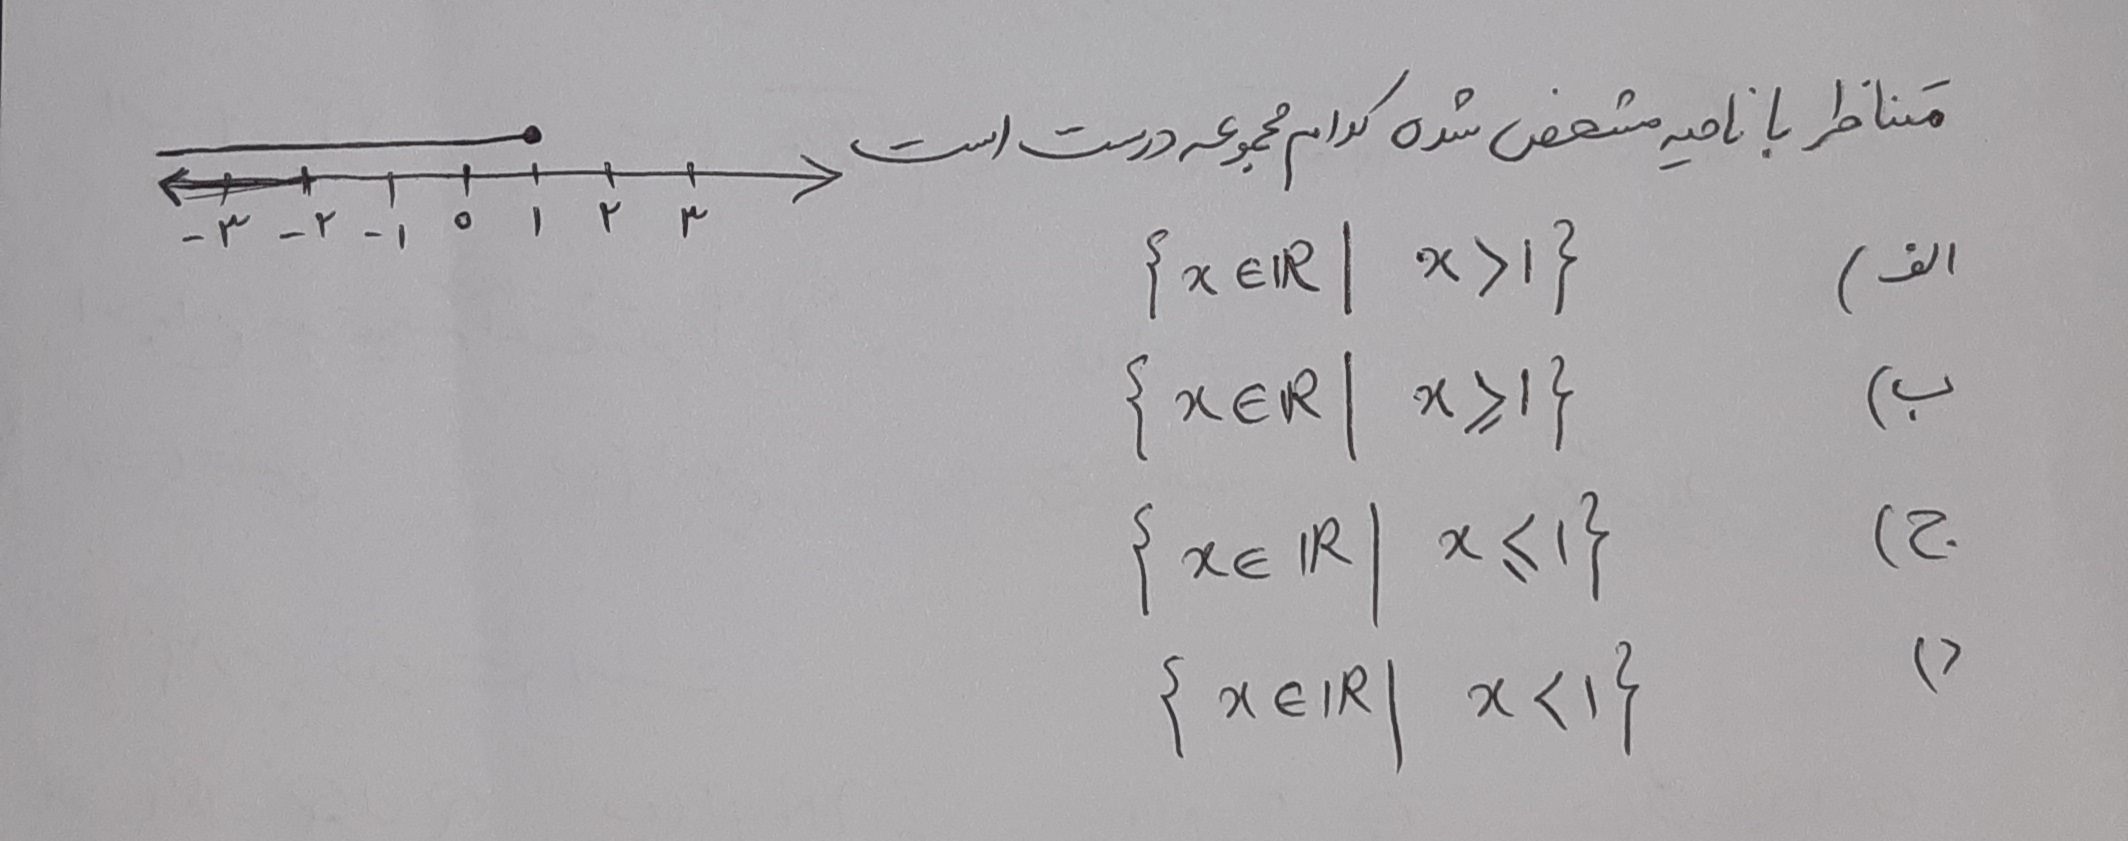 متناظر با ناحیه مشخص شده کدام مجموعه درست است
-۳ -۲ -۱ ۰ ۱ ۲ ۳
الف) {x∈ℝ | x>1}
ب) {x∈ℝ | x⩾1}
ج) {x∈ℝ | x⩽1}
د) {x∈ℝ | x<1}